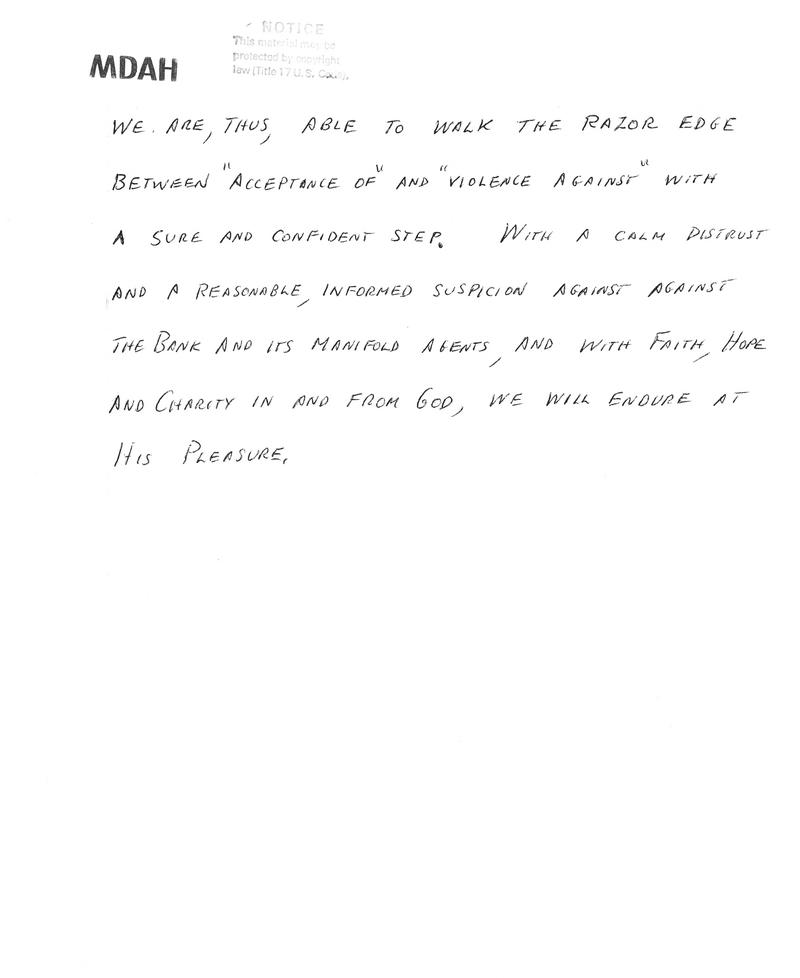 NOTICE
This material may be
protected by copyright
law (Title 17 U.S. Code).
MDAH
WE ARE, THUS, ABLE TO WALK THE RAZOR EDGE
BETWEEN "ACCEPTANCE OF" AND "VIOLENCE AGAINST" WITH
A SURE AND CONFIDENT STEP. WITH A CALM DISTRUST
AND A REASONABLE, INFORMED SUSPICION AGAINST AGAINST
THE BANK AND ITS MANIFOLD AGENTS, AND WITH FAITH, HOPE
AND CHARITY IN AND FROM GOD, WE WILL ENDURE AT
HIS PLEASURE.